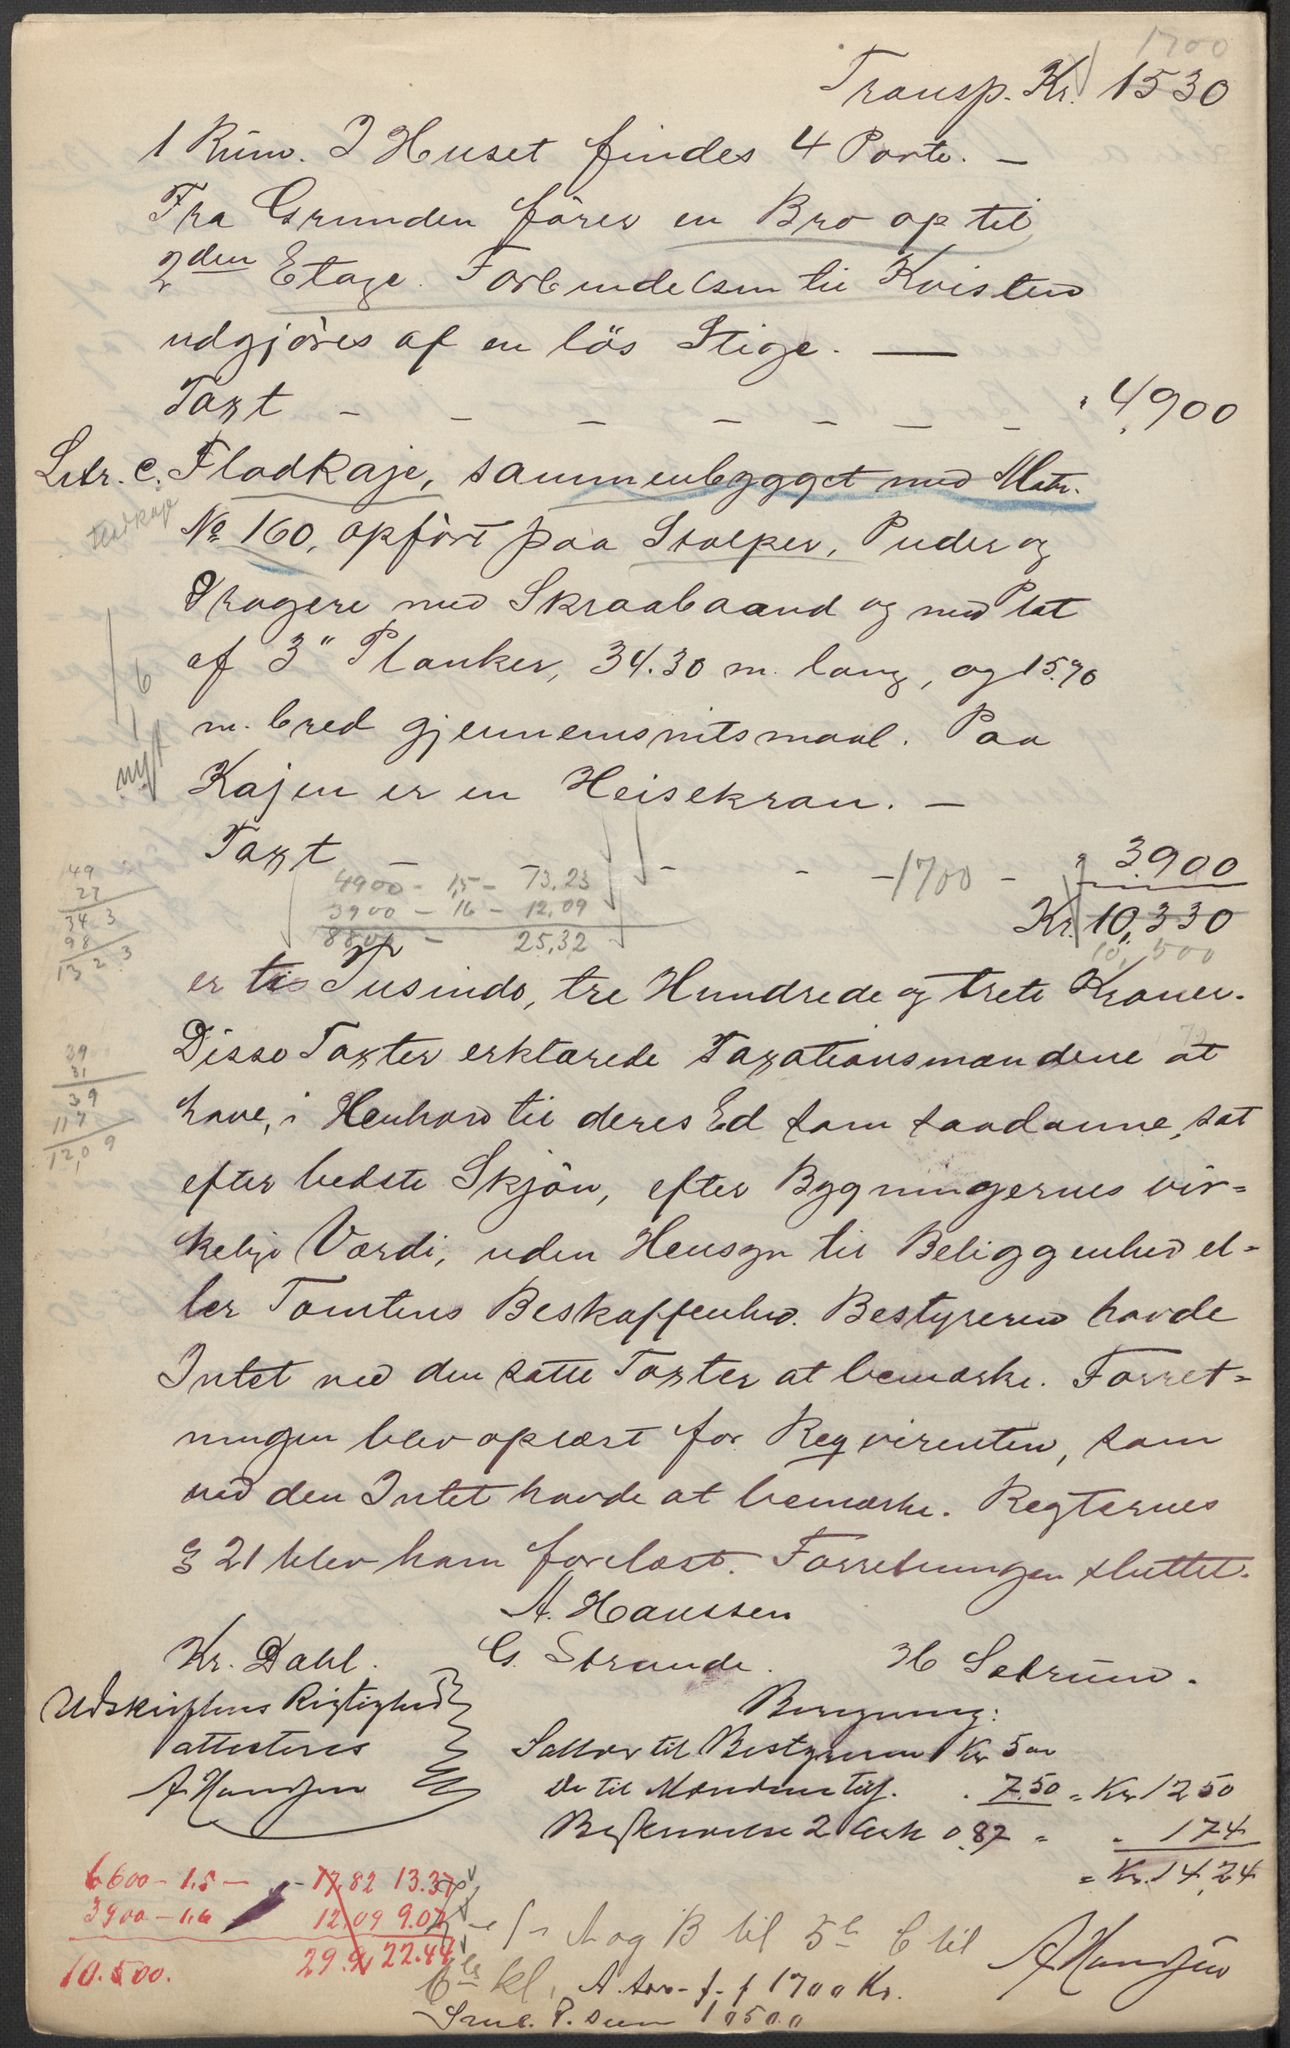 1700
Transp. Kr. 1530
1 Rum. I Huset findes 4 Porte. —
Fra Grunden fører en Bro op til
2den Etage. Forbindelsen til Kvisten
udgjøres af en løs Stige. —
Taxt — — — — — — — " 4,900
Litr. C. Flodkaje, sammenbygget med Matr.
No 160, opført paa Stolper, Puder og
Dragere med Skraabaand og med Plat
af 3" Planker, 34.30 m. lang, og 15.70
m. bred gjennemsnitsmaal. Paa
Kajen er en Heisekran. —
nyt
Taxt — — — 1700 — " 3,900
4900 — 1,5 — 73.23
3900 — 16 — 12.09
8800 — 25,32
Kr. 10,330
10,500
49
27
343
98
1323
er ti Tusinde, tre Hundrede og treti Kroner.
Disse Taxter erklærede Taxationsmændene at
have, i Henhold til deres Ed som saadanne, sat
39
31
39
117
12,09
efter bedste Skjøn, efter Bygningernes vir-
kelige Værdi, uden Hensyn til Beliggenhed el-
ler Tomtens Beskaffenhed. Bestyreren havde
Intet ved den satte Taxter at bemærke. Forret-
ningen blev oplæst for Reqvirenten, som
ved den Intet havde at bemærke. Reglernes
§ 21 blev ham forelæst. Forretningen sluttet.
A. Hanssen
Kr. Dahl. G. Strande. H Sætrum.
Udskriftens Rigtighed
attesteres
A Hanssen
Beregning:
Salær til Bestyreren Kr 5 00
Do til Mændene tils. " 7.50 = Kr. 12 50
Beskrivelse 2 Ark 0.87 = " 174
= Kr. 14,24
A Hanssen
6600 — 1.5 — 17.82 13.37
3900 — 1.6 12.09 9.07
10.500. 29.91 22.44
A og B til 5te C til
6te kl. A. 1700 Kr.
P. sum 10500